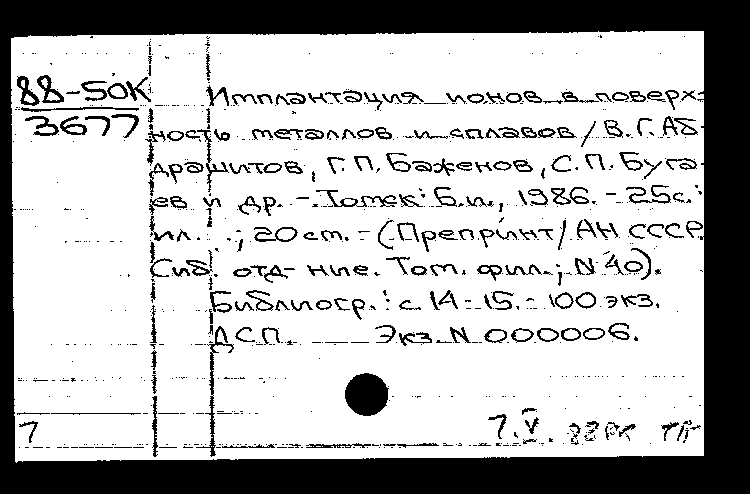 88-50К
3677
Имплантация ионов в поверх-
ность металлов и сплавов / В. Г. Аб-
драшитов, Г. П. Баженов, С. П. Буга-
ев и др. -. Томск: Б.и., 1986. - 25с.:
ил. ; 20 cm. - (Препринт / АН СССР.
Сиб. отд-ние. Том. фил.; N 40).
Библиогр.: с. 14-15. - 100 экз.
ДСП. Экз. N 000006.
7 7. V. 88